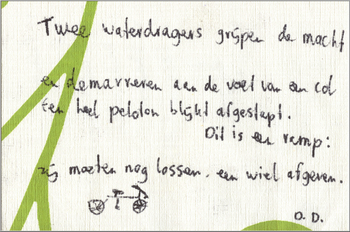 Twee waterdragers grijpen de macht
en demarreren aan de voet van een col
Een heel peloton blijkt afgestapt.
Dit is een ramp:
zij moeten nog lossen, een wiel afgeven.
D.D.